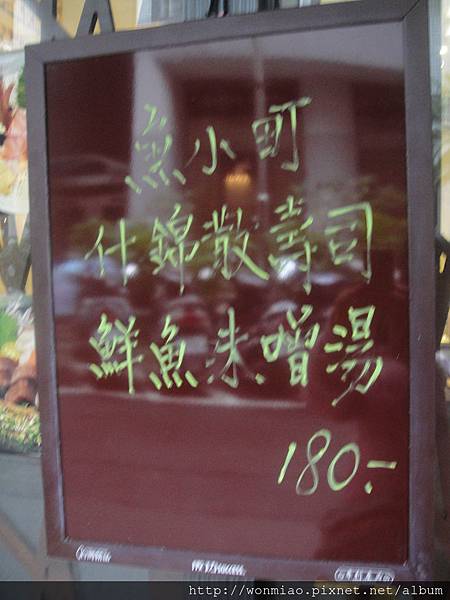 魚小町
什錦散壽司
鮮魚味噌湯
180.-
http://wonmiao.pixnet.net/album